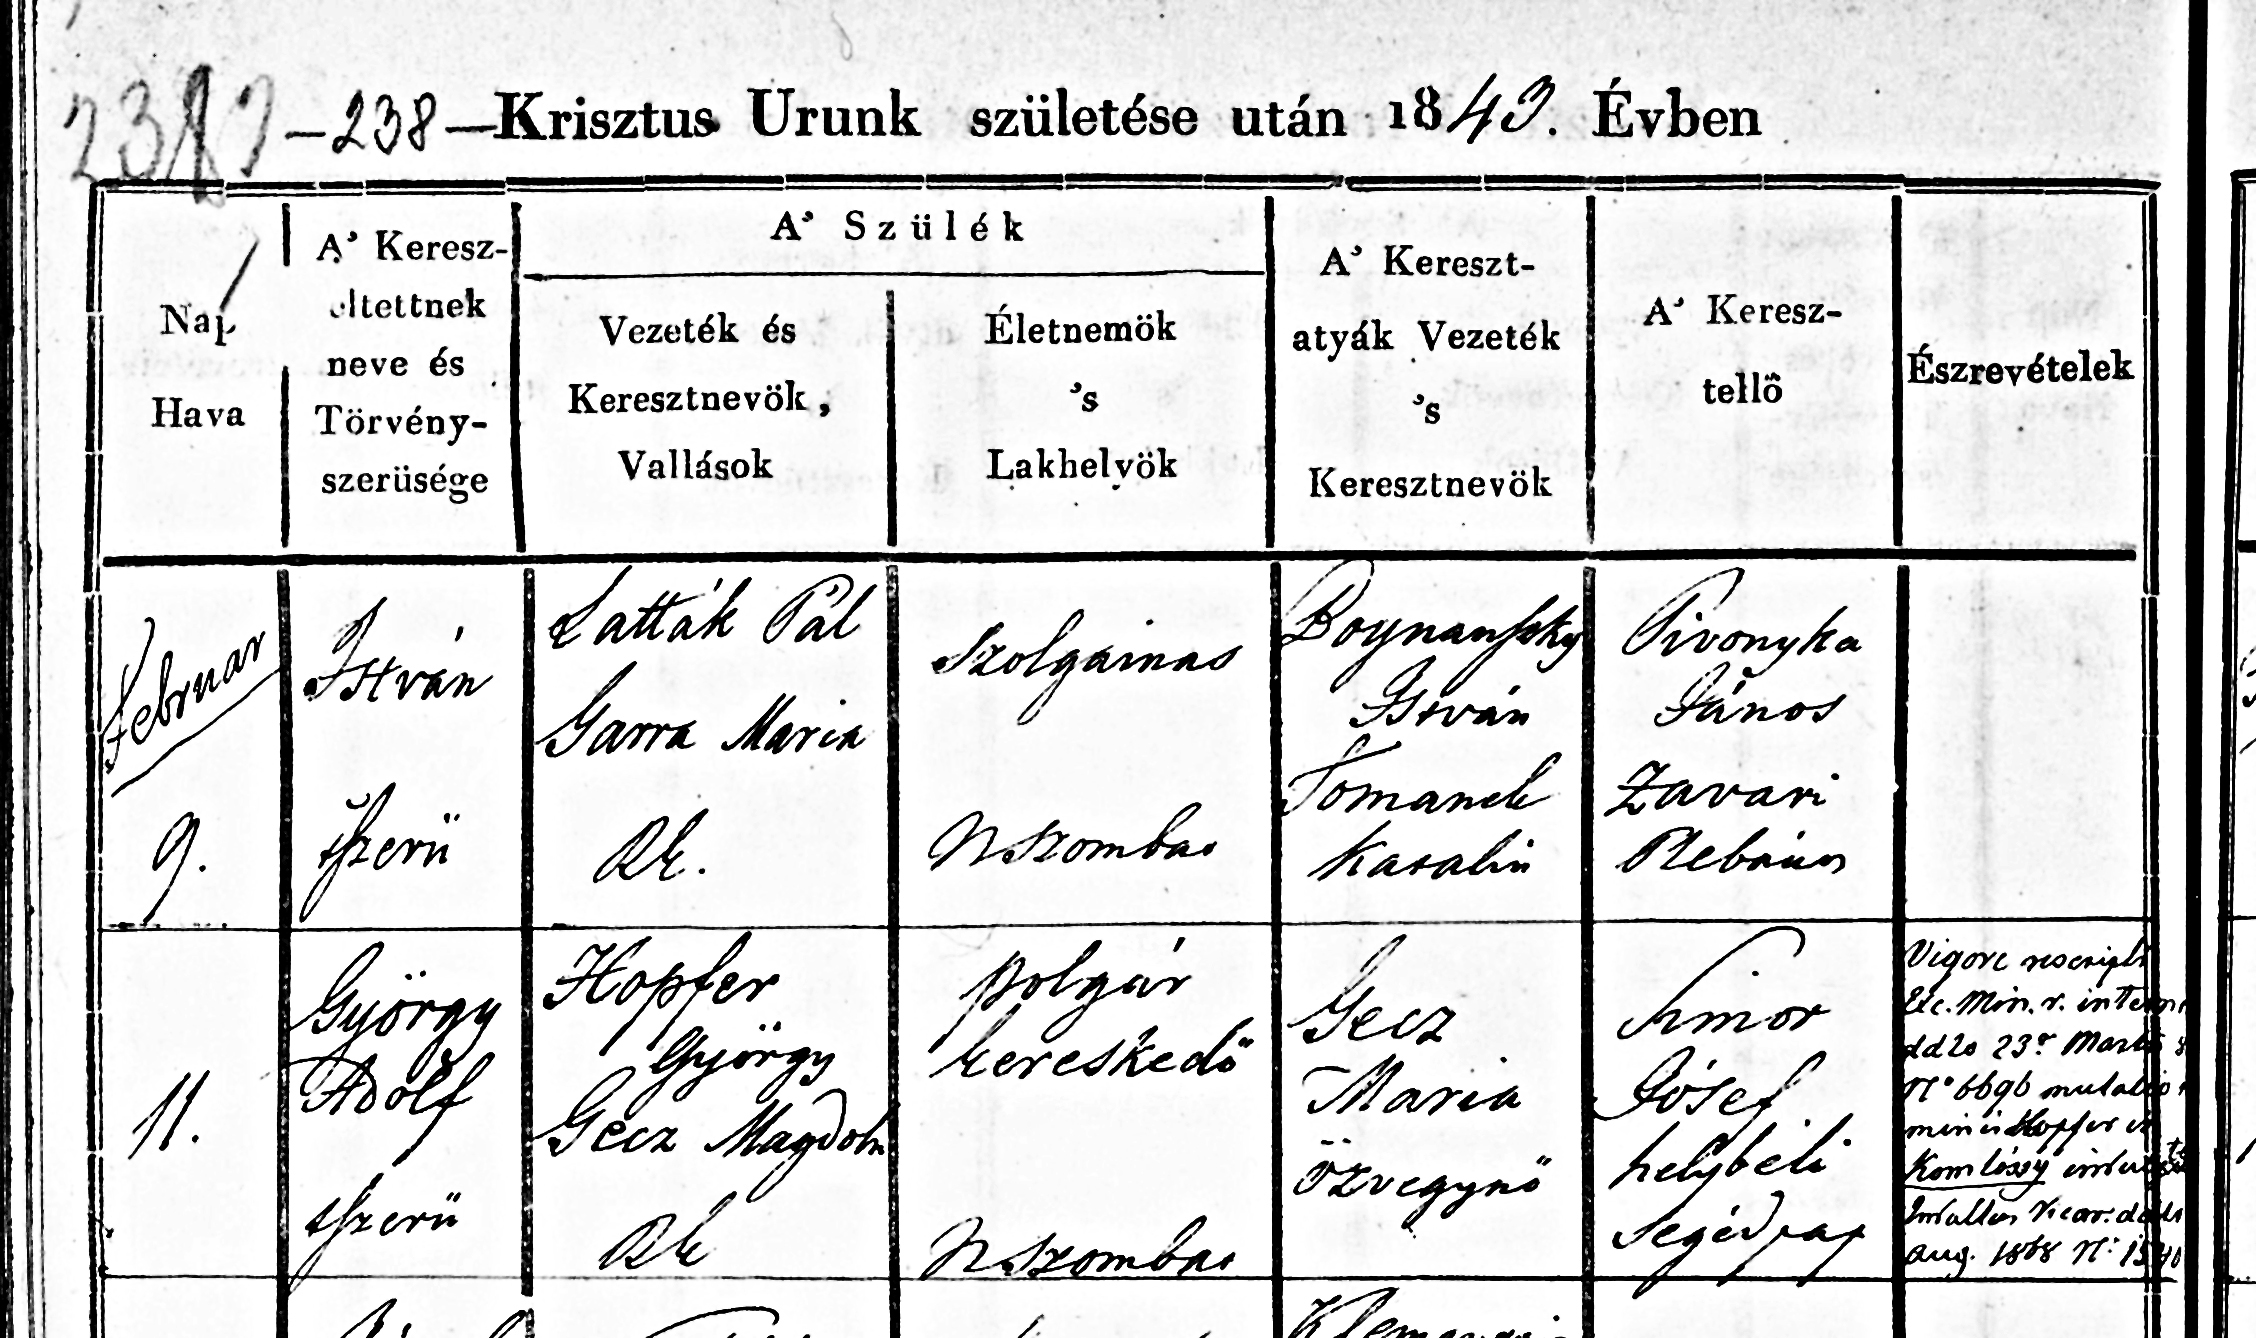 —238—Krisztus Urunk születése után 1843. Évben
Nap
Hava
A' Keresz-
eltettnek
neve és
Törvény-
szerüsége
A' Szülék
Vezeték és
Keresztnevök,
Vallások
Életnemök
's
Lakhelyök
A' Kereszt-
atyák Vezeték
's
Keresztnevök
A' Keresz-
tellő
Észrevételek
Februar
9.
István
tszerü
Latták Pál
Garra Maria
Rk.
NSzombat
István
Tomanek
Katalin
Pivonyka
János
Zavari
Plebános
11.
György
Adolf
tszerü
Hopfer
György
Gecz Magdoln
Rk
polgár
kereskedő
NSzombat
Gecz
Maria
özvegynő
Simor
Jósef
helybeli
segédpap
Vigore rescripti
Exc. Min. r. intern
ddto 23a Martii
No 6696 mutatio
Hopfer in
Komlóssy
Vicar.
aug. 1868 No